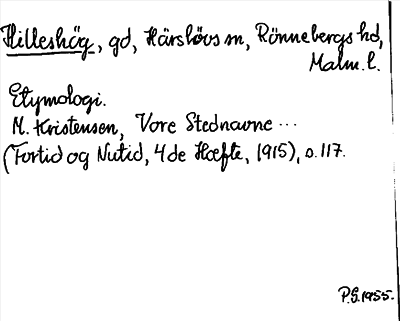 Hilleshög, gd, Härslövs sn, Rönnebergs hd,
Malm. l.
Etymologi.
M. Kristensen, Vore Stednavne ...
(Fortid og Nutid, 4de Hæfte, 1915), s. 117.
P.G. 1955.